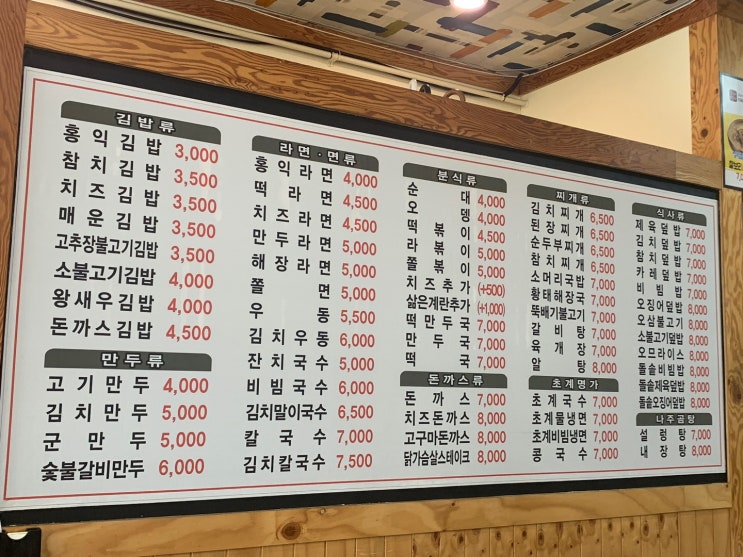 김밥류
홍익김밥 3,000
참치김밥 3,500
치즈김밥 3,500
매운김밥 3,500
고추장불고기김밥 3,500
소불고기김밥 4,000
왕새우김밥 4,000
돈까스김밥 4,500
만두류
고기만두 4,000
김치만두 5,000
군만두 5,000
숯불갈비만두 6,000
라면·면류
홍익라면 4,000
떡라면 4,500
치즈라면 4,500
만두라면 5,000
해장라면 5,000
쫄면 5,000
우동 5,500
김치우동 6,000
잔치국수 5,000
비빔국수 6,000
김치말이국수 6,500
칼국수 7,000
김치칼국수 7,500
분식류
순대 4,000
오뎅 4,000
떡볶이 4,500
라볶이 5,000
쫄볶이 5,000
치즈추가 (+500)
삶은계란추가 (+1,000)
떡만두국 7,000
만두국 7,000
떡국 7,000
돈까스류
돈까스 7,000
치즈돈까스 8,000
고구마돈까스 8,000
닭가슴살스테이크 8,000
찌개류
김치찌개 6,500
된장찌개 6,500
순두부찌개 6,500
참치찌개 6,500
소머리국밥 7,000
황태해장국 7,000
뚝배기불고기 7,000
갈비탕 7,000
육개장 7,000
알탕 8,000
초계명가
초계국수 7,000
초계물냉면 7,000
초계비빔냉면 7,000
콩국수 7,000
식사류
제육덮밥 7,000
김치덮밥 7,000
참치덮밥 7,000
카레덮밥 7,000
비빔밥 7,000
오징어덮밥 8,000
오삼불고기 8,000
소불고기덮밥 8,000
오므라이스 8,000
돌솥비빔밥 8,000
돌솥제육덮밥 8,000
돌솥오징어덮밥 8,000
나주곰탕
설렁탕 7,000
내장탕 8,000